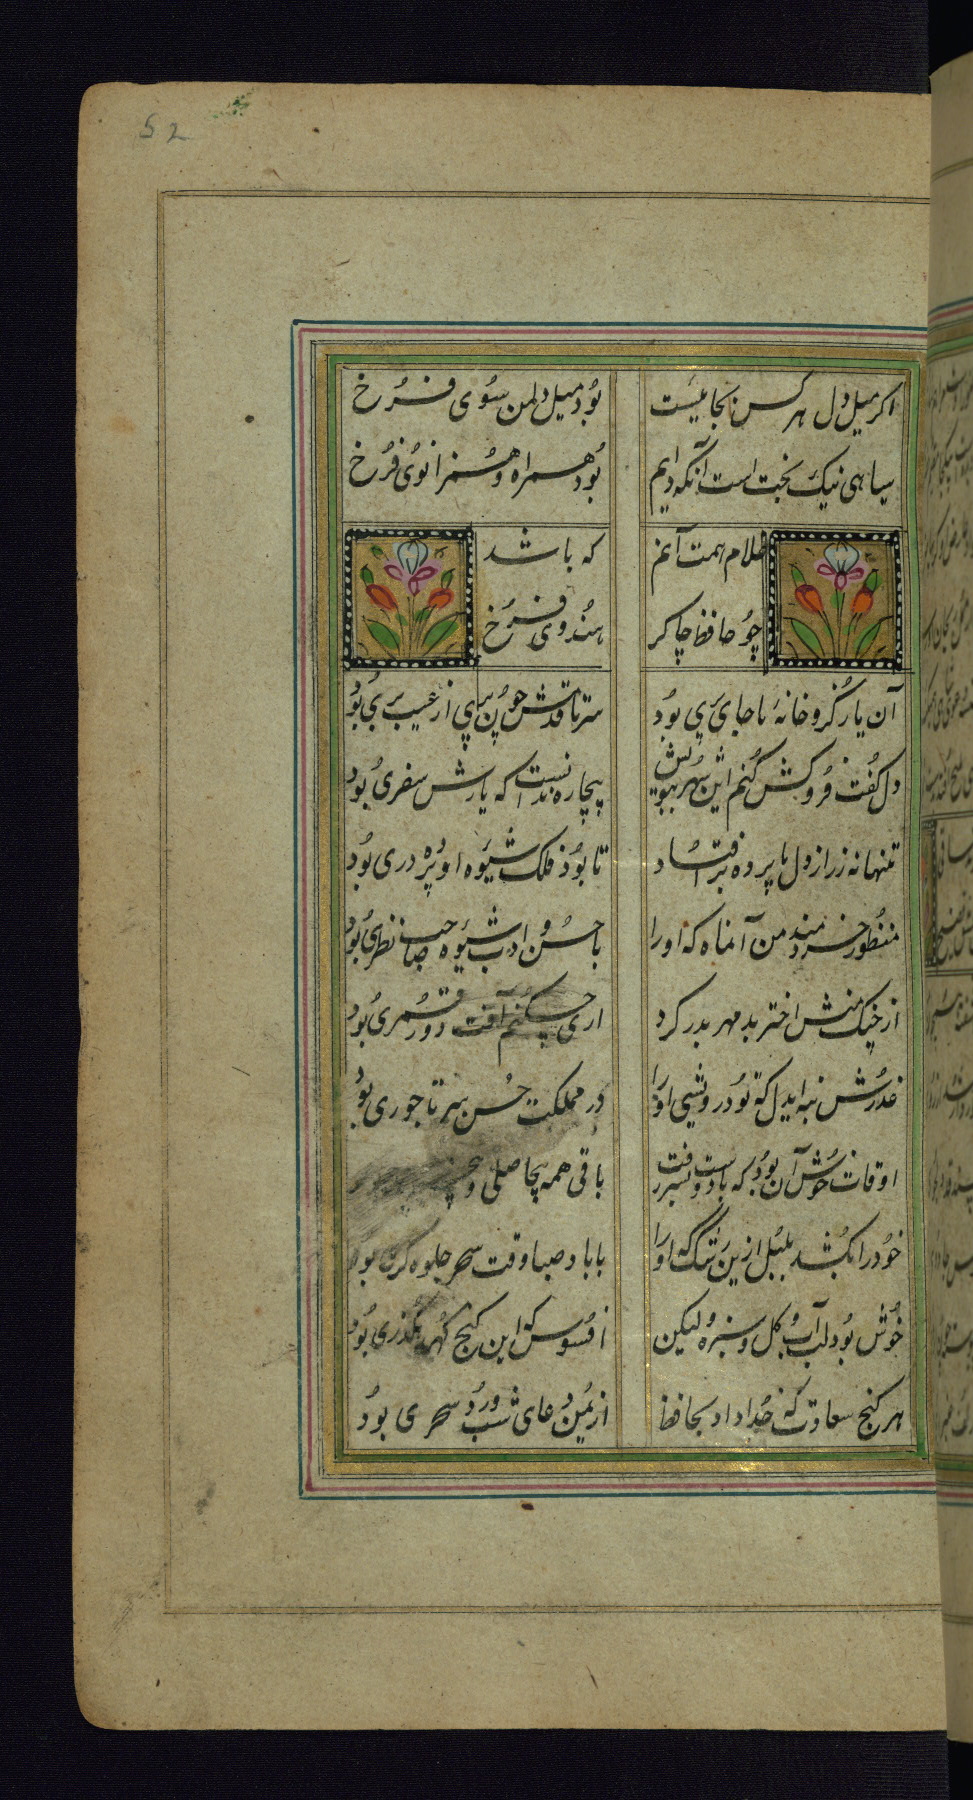 52
اکر میل دل هر کس بجائیست	بُود میل دلمن سُوی فرُخ
سیاهی نیک بخت است آنکه دایم	بُود همراه و همزانوی فرُخ
غلام همت آنم	که باشد
چو حافظ چاکر	هندوی فرُخ
آن یار کزو خانهٔ ما جای پری بود	سر تا قدمش چون پری از عیب بری بُود
دل کفت فروکش کنم این شهر ببویش	بیچاره ندانست که یارش سفری بُود
تنها نه ز راز دل ما پرده برافتاد	تا بود فلک شیوه او پرده دری بُود
منظور خردمند من آنماه که او را	با حسن و ادب شیوه صاحب نظری بُود
از چنک منش اختر بد مهر بدر کرد	اری چکنم آفت دور قمری بُود
عذرش بنه ایدل که تو درویشی او را	در مملکت حسن سر تاجوری بُود
اوقات خوش آن بود که با دوست بسر رفت	باقی همه بیحاصلی و
خود را بکشد بلبل ازین رشک که او را	با باد صبا وقت سحر جلوه کری بود
خوش بود لب آب و کل و سبزه ولیکن	افسوس که این کنج کهر کذری بُود
هر کنج سعادت که خداداد بحافظ	از یمن دعای شب و ورد سحری بود